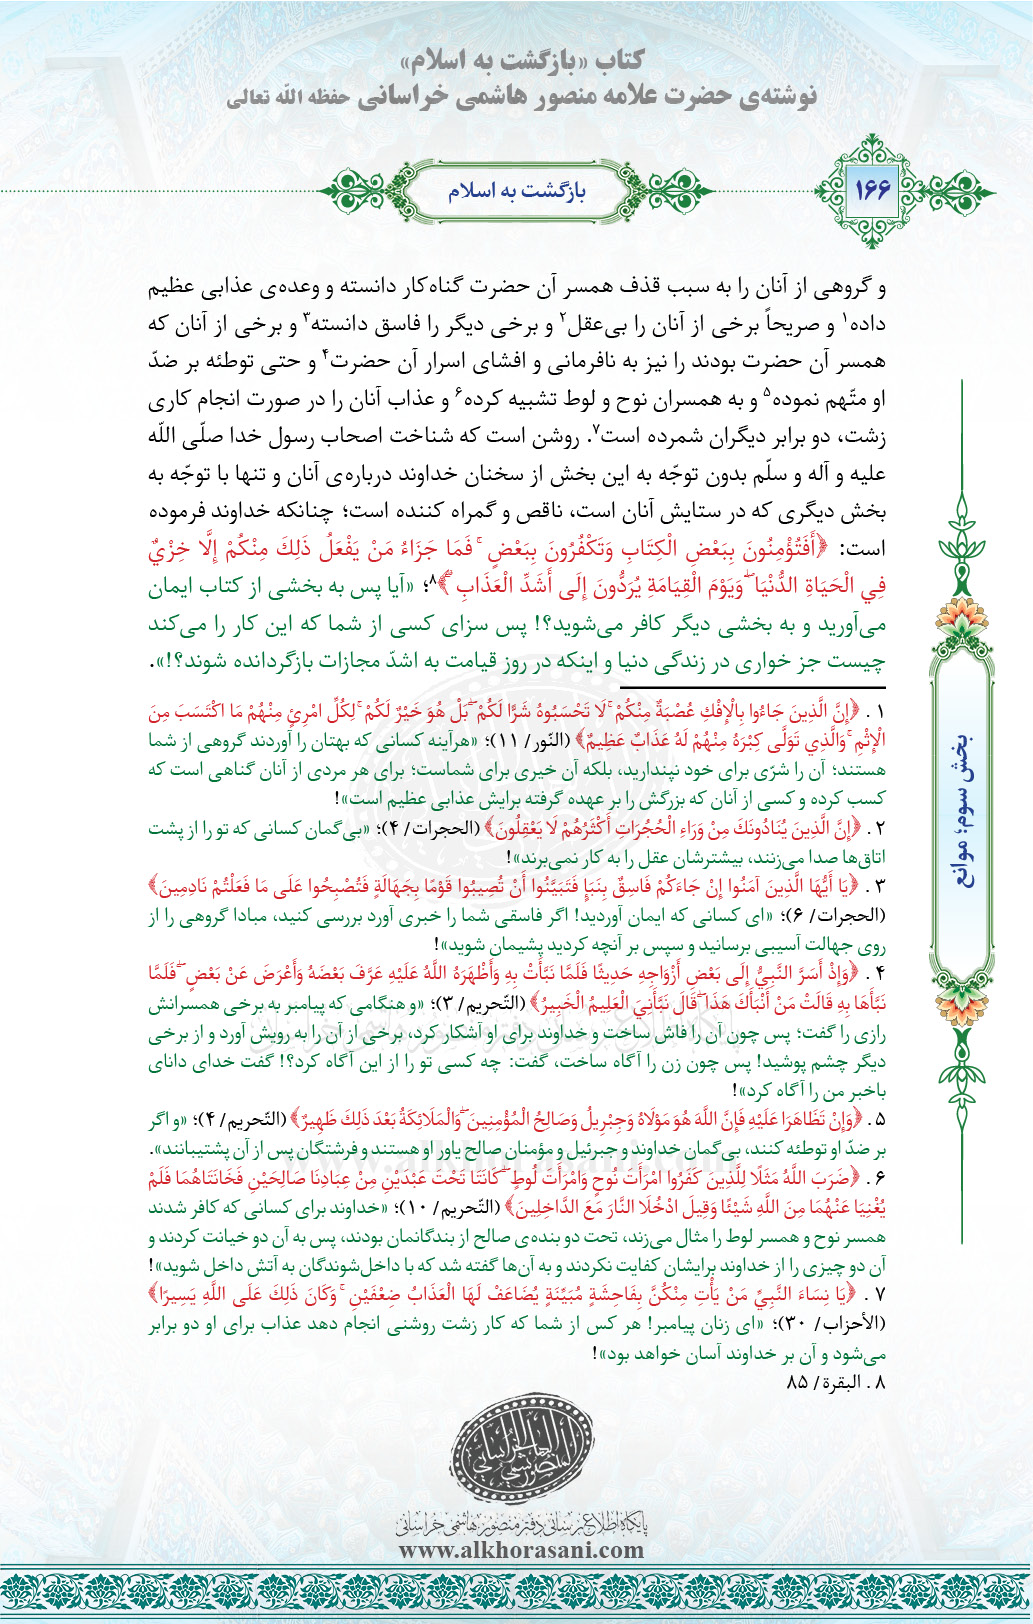 کتاب «بازگشت به اسلام»
نوشته‌ی حضرت علامه منصور هاشمی خراسانی حفظه الله تعالی
۱۶۶
بازگشت به اسلام
و گروهی از آنان را به سبب قذف همسر آن حضرت گناه‌کار دانسته و وعده‌ی عذابی عظیم
داده۱ و صریحاً برخی از آنان را بی‌عقل۲ و برخی دیگر را فاسق دانسته۳ و برخی از آنان که
همسر آن حضرت بودند را نیز به نافرمانی و افشای اسرار آن حضرت۴ و حتی توطئه بر ضدّ
او متّهم نموده۵ و به همسران نوح و لوط تشبیه کرده۶ و عذاب آنان را در صورت انجام کاری
زشت، دو برابر دیگران شمرده است۷. روشن است که شناخت اصحاب رسول خدا صلّی اللّه
علیه و آله و سلّم بدون توجّه به این بخش از سخنان خداوند درباره‌ی آنان و تنها با توجّه به
بخش دیگری که در ستایش آنان است، ناقص و گمراه کننده است؛ چنانکه خداوند فرموده
است: ﴿أَفَتُؤْمِنُونَ بِبَعْضِ الْكِتَابِ وَتَكْفُرُونَ بِبَعْضٍ ۚ فَمَا جَزَاءُ مَنْ يَفْعَلُ ذَلِكَ مِنْكُمْ إِلَّا خِزْيٌ
فِي الْحَيَاةِ الدُّنْيَا ۖ وَيَوْمَ الْقِيَامَةِ يُرَدُّونَ إِلَى أَشَدِّ الْعَذَابِ ۗ﴾۸؛ «آیا پس به بخشی از کتاب ایمان
می‌آورید و به بخشی دیگر کافر می‌شوید؟! پس سزای کسی از شما که این کار را می‌کند
چیست جز خواری در زندگی دنیا و اینکه در روز قیامت به اشدّ مجازات بازگردانده شوند؟!».
۱ . ﴿إِنَّ الَّذِينَ جَاءُوا بِالْإِفْكِ عُصْبَةٌ مِنْكُمْ ۚ لَا تَحْسَبُوهُ شَرًّا لَكُمْ ۖ بَلْ هُوَ خَيْرٌ لَكُمْ ۚ لِكُلِّ امْرِئٍ مِنْهُمْ مَا اكْتَسَبَ مِنَ
الْإِثْمِ ۚ وَالَّذِي تَوَلَّى كِبْرَهُ مِنْهُمْ لَهُ عَذَابٌ عَظِيمٌ﴾ (النّور/ ۱۱)؛ «هرآینه کسانی که بهتان را آوردند گروهی از شما
هستند؛ آن را شرّی برای خود نپندارید، بلکه آن خیری برای شماست؛ برای هر مردی از آنان گناهی است که
کسب کرده و کسی از آنان که بزرگش را بر عهده گرفته برایش عذابی عظیم است»!
۲ . ﴿إِنَّ الَّذِينَ يُنَادُونَكَ مِنْ وَرَاءِ الْحُجُرَاتِ أَكْثَرُهُمْ لَا يَعْقِلُونَ﴾ (الحجرات/ ۴)؛ «بی‌گمان کسانی که تو را از پشت
اتاق‌ها صدا می‌زنند، بیشترشان عقل را به کار نمی‌برند»!
۳ . ﴿يَا أَيُّهَا الَّذِينَ آمَنُوا إِنْ جَاءَكُمْ فَاسِقٌ بِنَبَإٍ فَتَبَيَّنُوا أَنْ تُصِيبُوا قَوْمًا بِجَهَالَةٍ فَتُصْبِحُوا عَلَى مَا فَعَلْتُمْ نَادِمِينَ﴾
(الحجرات/ ۶)؛ «ای کسانی که ایمان آوردید! اگر فاسقی شما را خبری آورد بررسی کنید، مبادا گروهی را از
روی جهالت آسیبی برسانید و سپس بر آنچه کردید پشیمان شوید»!
۴ . ﴿وَإِذْ أَسَرَّ النَّبِيُّ إِلَى بَعْضِ أَزْوَاجِهِ حَدِيثًا فَلَمَّا نَبَّأَتْ بِهِ وَأَظْهَرَهُ اللَّهُ عَلَيْهِ عَرَّفَ بَعْضَهُ وَأَعْرَضَ عَنْ بَعْضٍ ۖ فَلَمَّا
نَبَّأَهَا بِهِ قَالَتْ مَنْ أَنْبَأَكَ هَذَا ۖ قَالَ نَبَّأَنِيَ الْعَلِيمُ الْخَبِيرُ﴾ (التّحریم/ ۳)؛ «و هنگامی که پیامبر به برخی همسرانش
رازی را گفت؛ پس چون آن را فاش ساخت و خداوند برای او آشکار کرد، برخی از آن را به رویش آورد و از برخی
دیگر چشم پوشید! پس چون زن را آگاه ساخت، گفت: چه کسی تو را از این آگاه کرد؟! گفت خدای دانای
باخبر من را آگاه کرد»!
۵ . ﴿وَإِنْ تَظَاهَرَا عَلَيْهِ فَإِنَّ اللَّهَ هُوَ مَوْلَاهُ وَجِبْرِيلُ وَصَالِحُ الْمُؤْمِنِينَ ۖ وَالْمَلَائِكَةُ بَعْدَ ذَلِكَ ظَهِيرٌ﴾ (التّحریم/ ۴)؛ «و اگر
بر ضدّ او توطئه کنند، بی‌گمان خداوند و جبرئیل و مؤمنان صالح یاور او هستند و فرشتگان پس از آن پشتیبانند».
۶ . ﴿ضَرَبَ اللَّهُ مَثَلًا لِلَّذِينَ كَفَرُوا امْرَأَتَ نُوحٍ وَامْرَأَتَ لُوطٍ ۖ كَانَتَا تَحْتَ عَبْدَيْنِ مِنْ عِبَادِنَا صَالِحَيْنِ فَخَانَتَاهُمَا فَلَمْ
يُغْنِيَا عَنْهُمَا مِنَ اللَّهِ شَيْئًا وَقِيلَ ادْخُلَا النَّارَ مَعَ الدَّاخِلِينَ﴾ (التّحریم/ ۱۰)؛ «خداوند برای کسانی که کافر شدند
همسر نوح و همسر لوط را مثال می‌زند، تحت دو بنده‌ی صالح از بندگانمان بودند، پس به آن دو خیانت کردند و
آن دو چیزی را از خداوند برایشان کفایت نکردند و به آن‌ها گفته شد که با داخل‌شوندگان به آتش داخل شوید»!
۷ . ﴿يَا نِسَاءَ النَّبِيِّ مَنْ يَأْتِ مِنْكُنَّ بِفَاحِشَةٍ مُبَيِّنَةٍ يُضَاعَفْ لَهَا الْعَذَابُ ضِعْفَيْنِ ۚ وَكَانَ ذَلِكَ عَلَى اللَّهِ يَسِيرًا﴾
(الأحزاب/ ۳۰)؛ «ای زنان پیامبر! هر کس از شما که کار زشت روشنی انجام دهد عذاب برای او دو برابر
می‌شود و آن بر خداوند آسان خواهد بود»!
۸ . البقرة/ ۸۵
بخش سوم؛ موانع
المنصور الهاشمي الخراساني
پایگاه اطلاع‌رسانی دفتر منصور هاشمی خراسانی
www.alkhorasani.com